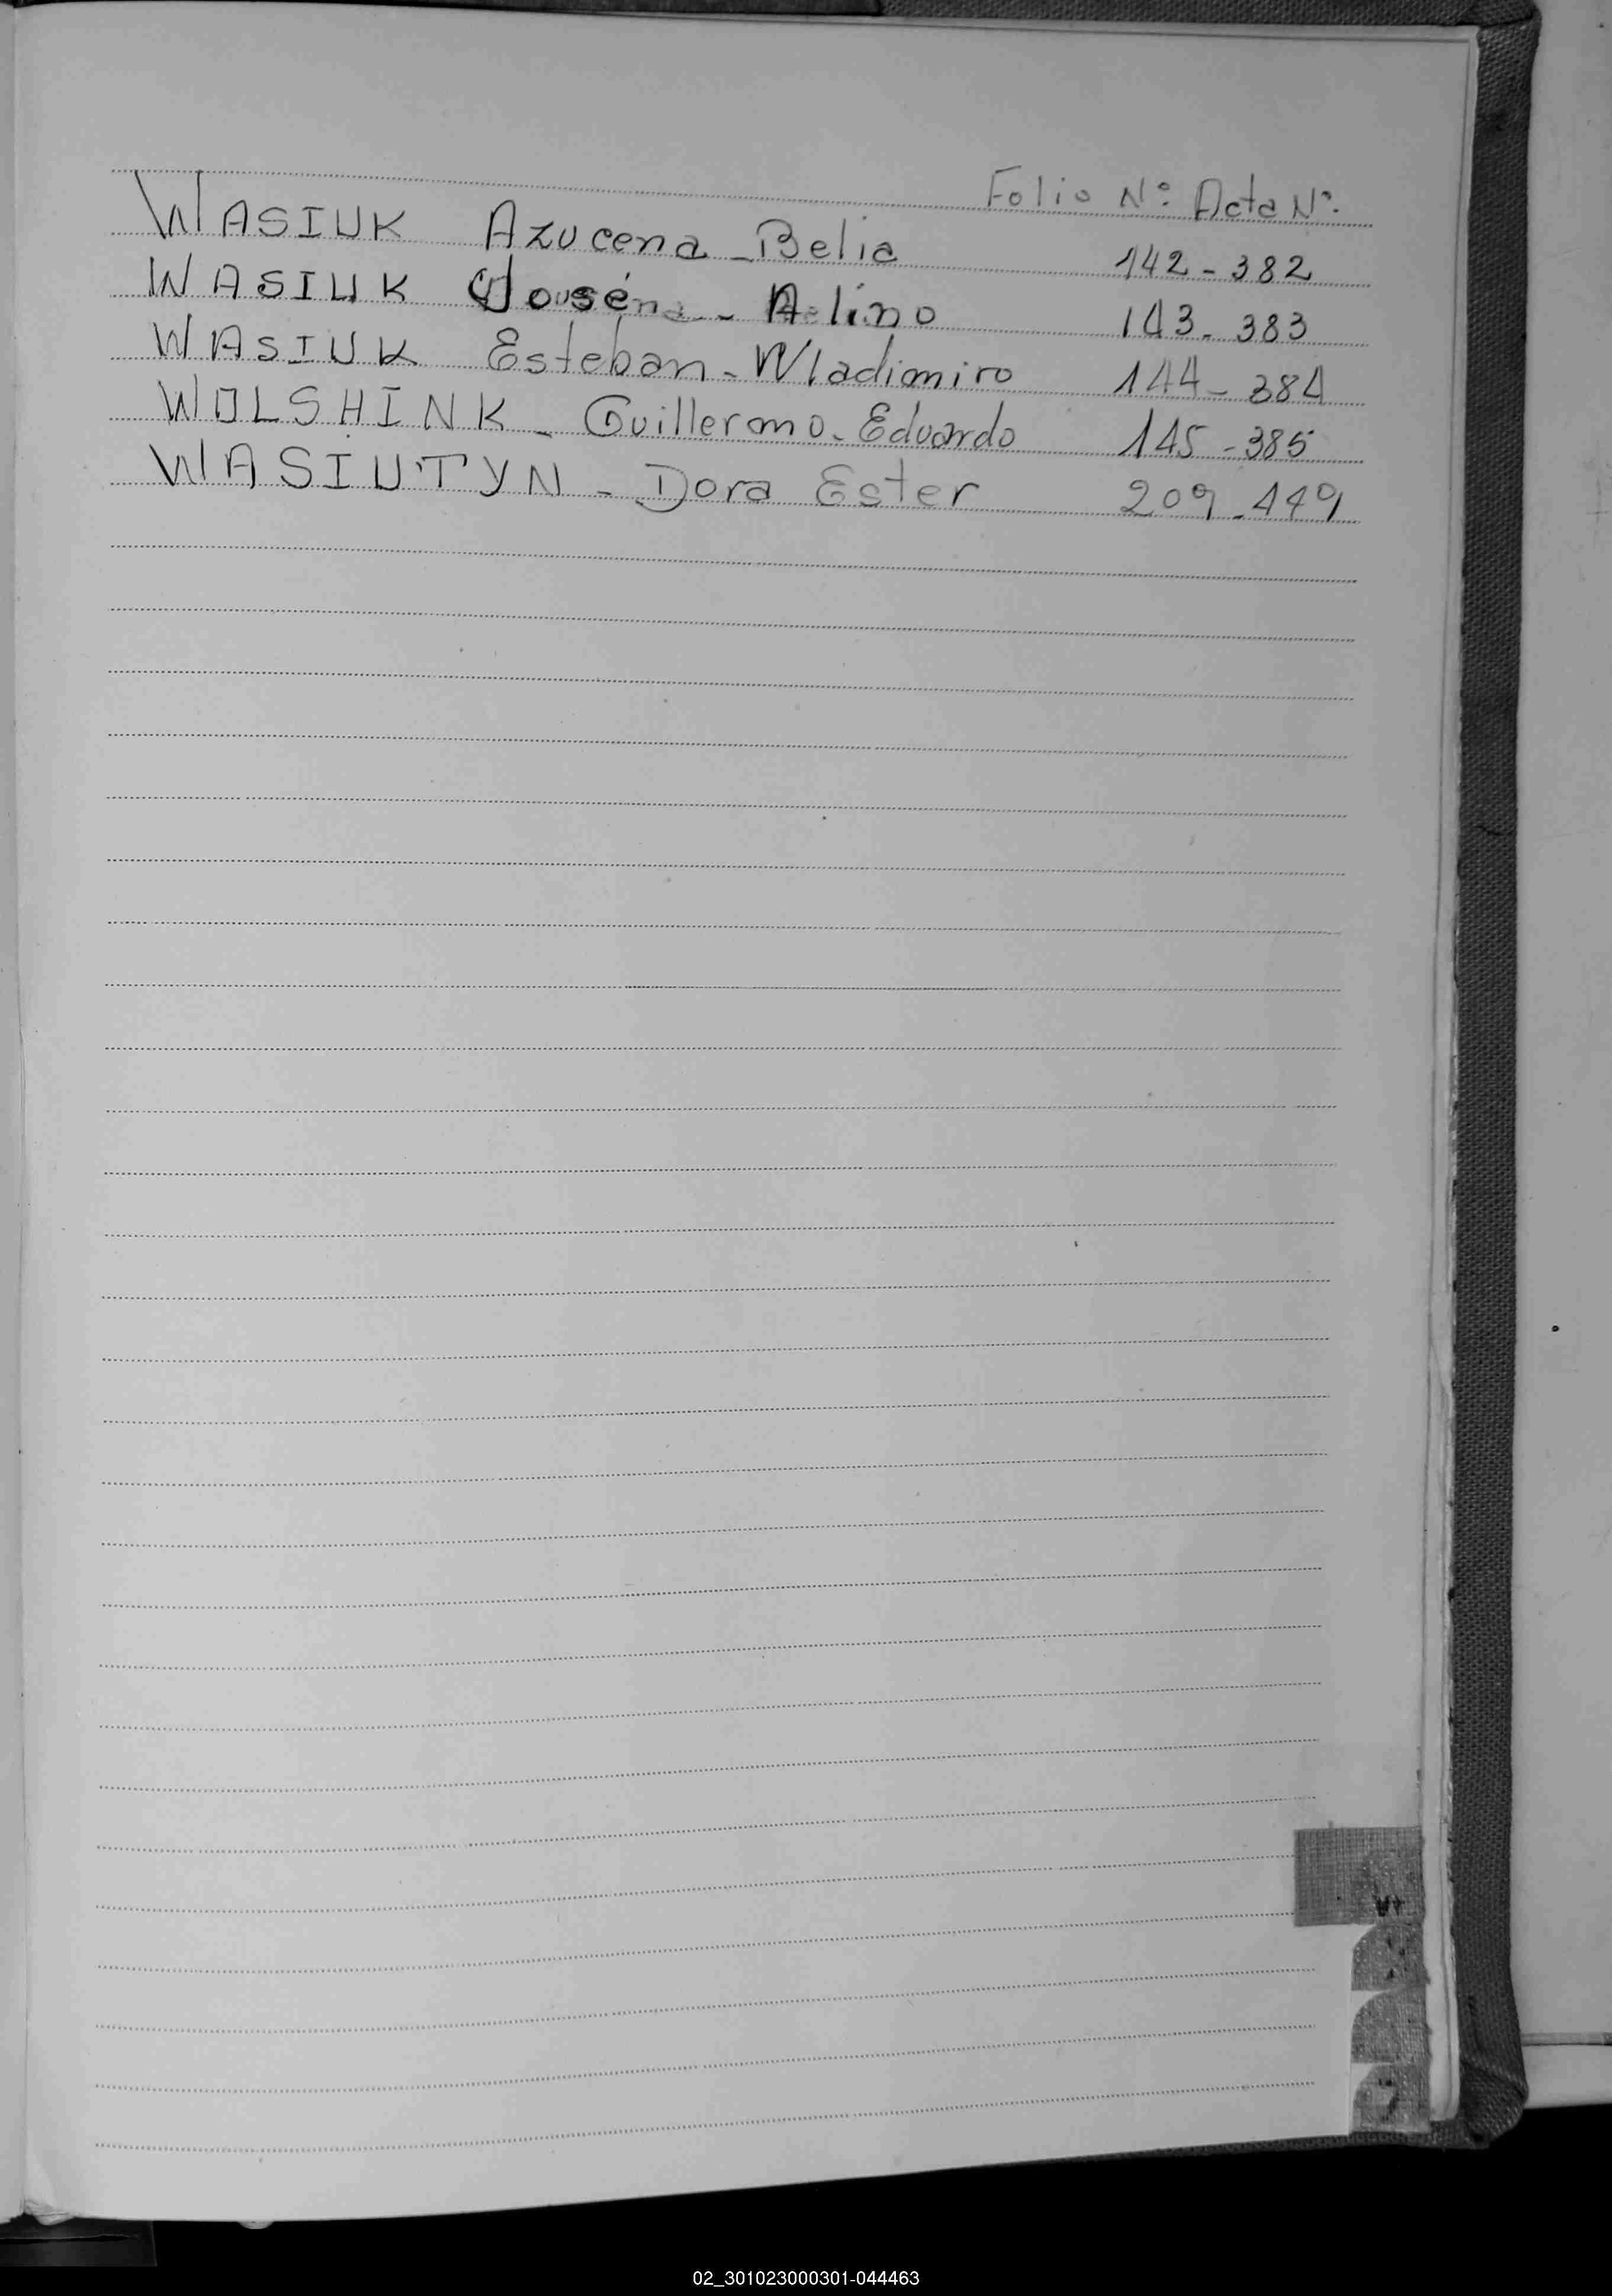 Folio Nº: Acta Nº.
WASIUK Azucena - Belia 142 - 382
WASIUK 143 - 383
WASIUK Esteban - Wladimiro 144 - 384
WOLSHINK - Guillermo - Eduardo 145 - 385
WASIUTYN - Dora Ester 209 - 449
02_301023000301-044463